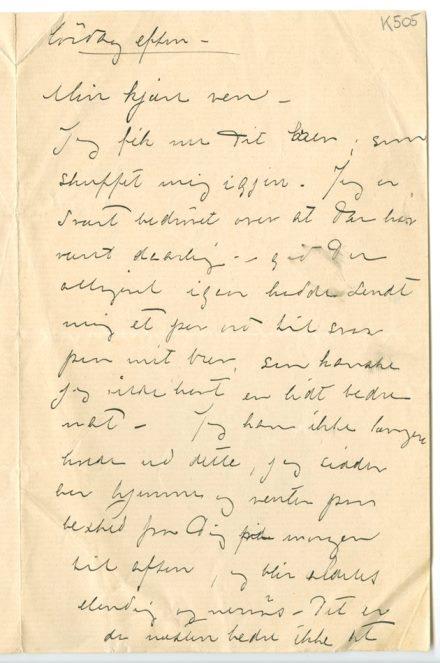 K505
Lördag eften –
Min kjære ven –
Jeg fik nu Dit brev, som
skuffet mig igjen. Jeg er
svært bedrövet over at Du har
vært daarlig – gid Du
alligevel igaar hadde sendt
mig et par ord til svar
paa mit brev, saa kanske
jeg vilde havt en lidt bedre
nat – Jeg kan ikke længere
holde ud dette, jeg sidder
her hjemme og venter paa
besked fra Dig fra morgen
til aften, og blir aldeles
elendig og nervøs – Det er
da næsten bedre ikke at